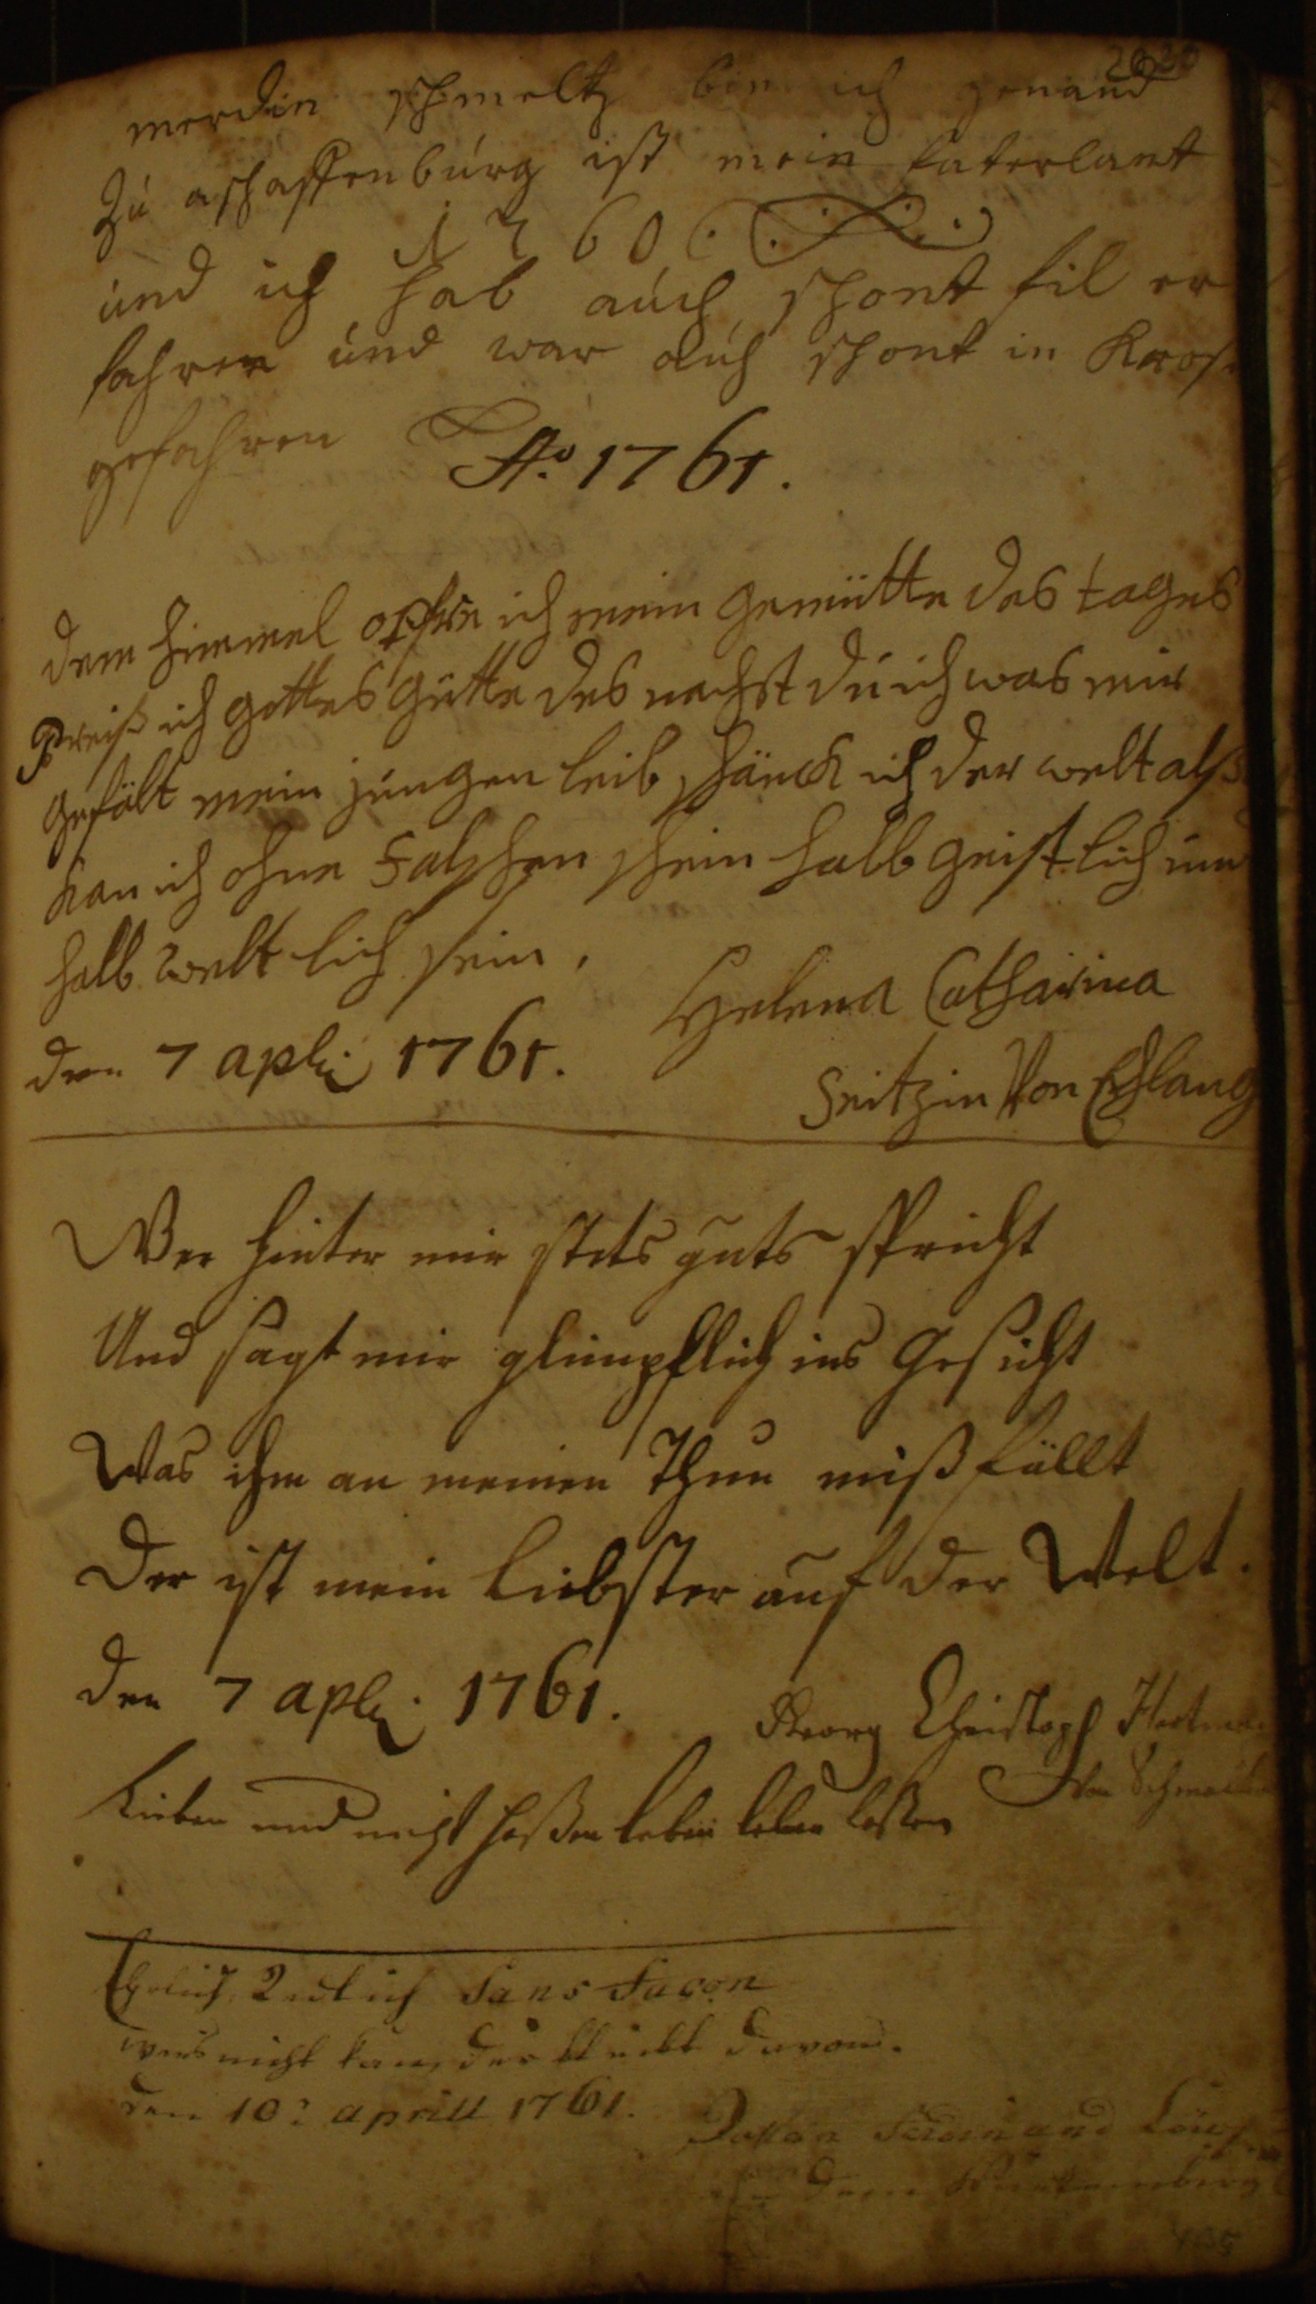 merdin schmeltz bin ich genand
Zu aschaffenburg ist mein faterlant
1760
und ich hab auch schont fil er
fahren und war auch schont in
gefahren
Ao. 1761.
dem himmel opfre ich mein gemütte des tages
Preiß ich gottes gütte des nachst du ich was mir
gefält mein jungen leib schänck ich der welt alß
kan ich ohne falschen schein halb geistlich un
halb welt lich sein.
den 7 apli 1761.
Helena Catharina
Seitzin Von
Wer hinter mir stets guts spricht
Und sagt mir glimpflich ins Gesicht
Was ihm an meinen Thun mißfällt
Der ist mein Liebster auf der Welt.
den 7 apli. 1761.
Georg Christoph
Von
Lieben und nicht haßen leben laßen
Ehrlich Redlich Sans Facon
wers nicht kan, der bleibt davon.
den 10: aprill 1761.
Ferdinand